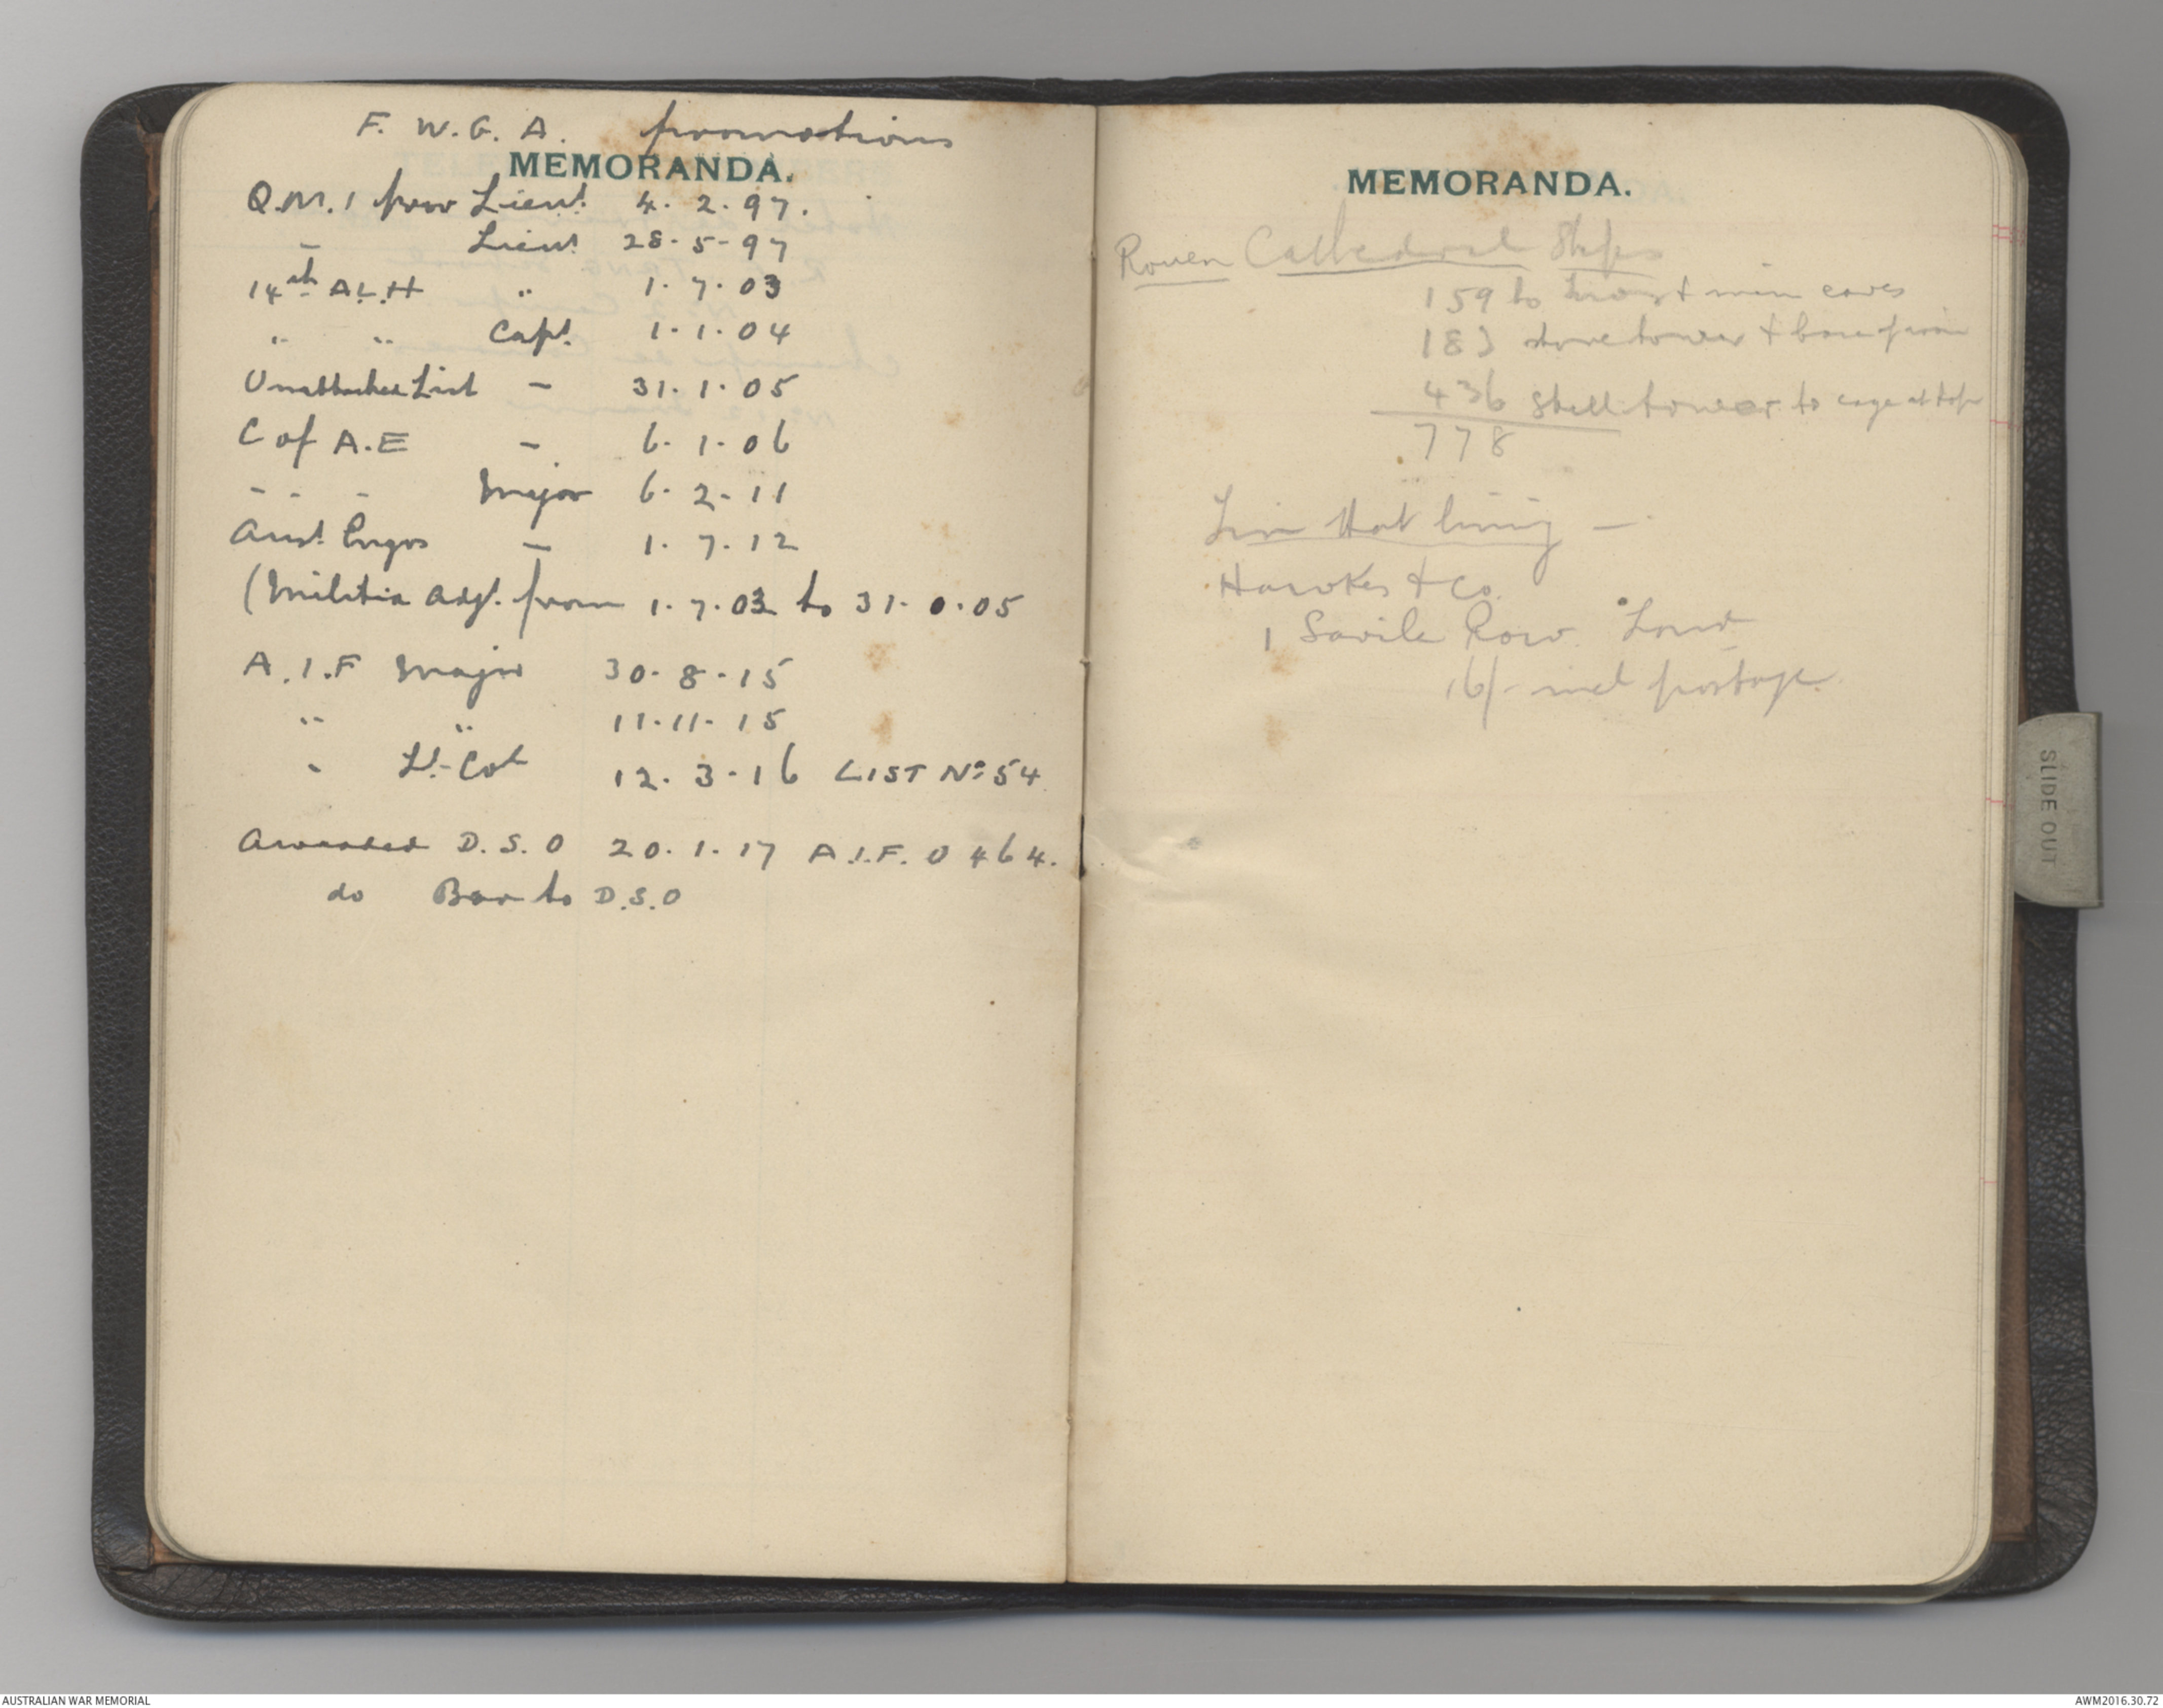 F. W. G. A. promotions
MEMORANDA.
Q.M.I prov Lieut 4. 2. 97.
- Lieut 28-5-97
14th A.L.H " 1. 7. 03
" " Capt. 1. 1. 04
Unattached List - 31. 1. 05
C of A.E - 6. 1. 06
- - - Major 6. 2. 11
Aust. Engrs - 1. 7. 12
(Militia Adjt. from 1. 7. 03 to 31. 0. 05
A.I.F Major 30. 8. 15
" " 11. 11. 15
" Lt-Col 12. 3. 16 LIST No 54
Awarded D.S.O 20. 1. 17 A.I.F. O 464.
do Bar to D.S.O
MEMORANDA.
Rouen Cathedral Steps
159 to main eaves
183 stone tower & base of
436 steel tower to cage at top
778
Hat lining -
Hawkes & Co.
1 Savile Row Lond
16/- incl postage.
SLIDE OUT
AUSTRALIAN WAR MEMORIAL
AWM2016.30.72